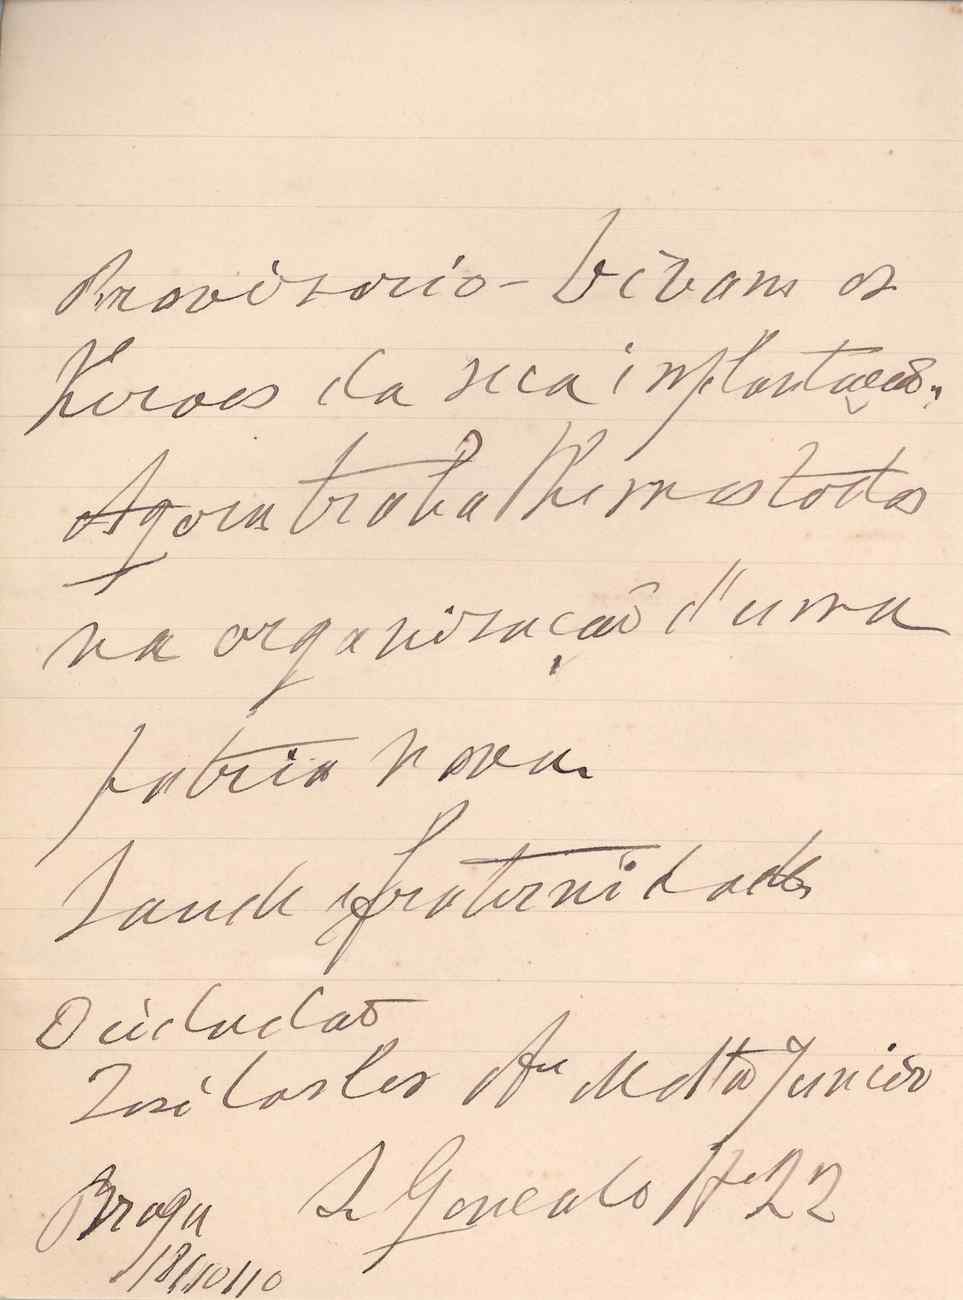 Provisorio - Vivam os
Heroes da sua implantação,,
Agora trabalhemos todos
na organisação d'uma
patria nova.
Saude e fraternidade
O cidadão
José Carlos da Motta Junior
Braga S Goncalo Nº 22
18/10/10